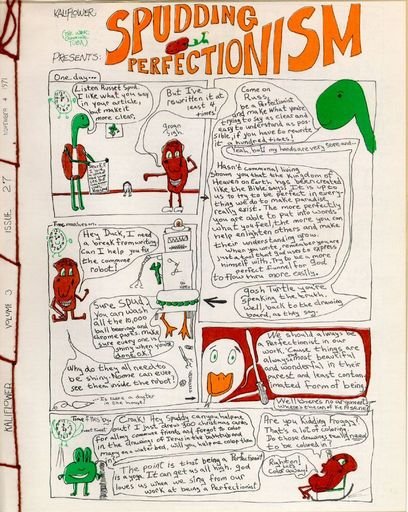 KALIFLOWER
PRESENTS:
SPUDDING
PERFECTIONISM
One day...
Listen Russet Spud
I like what you say
in your article,
but make it
more clear.
But I've
rewritten it at
least 4
times
groan
sigh
Come on
Russ,
be a Perfectionist
and make what you're
trying to say as clear and
easy to understand as pos-
sible, if you have to rewrite
it a hundred times!
Yeah, but my hands are very sore and..
Hasn't communal living
shown you that the Kingdom of
Heaven on Earth has been created
like the Bible says? It is up to
us to try to be perfect in every
thing we do to make paradise
really exist. The more perfectly
you are able to put into words
what you feel, the more you can
help enlighten others and make
their understanding grow.
When you write, remember you are
just a tool that God uses to express
himself with. Try to be a more
perfect funnel for God
to flow thru more easily.
Gosh Turtle you're
speaking the truth.
Well, back to the drawing
board, as they say.
Time marches on.
Hey Duck, I need
a break from writing
Can I help you fix
the commune
robot?
Sure, Spud
you can wash
all the 10,000
ball bearings and
chrome parts. Make
sure every one is
shiny when your
done, ok?
Why do they all need to
be shiny? Noone can ever
see them inside the robot!
Is there a doctor
in the house?
We should always be
a Perfectionist in our
work 'cause things are
always most beautiful
and wonderful in their
purest and least contam-
inated form of being.
Well there's no arguement
Time flies by
Croak! Hey Spuddy can you help me
out? I just drew 300 christmas cards
for all my commune friends and forgot to color
in the drawings of Jesus in the bathtub and
Mary on a water bed, will you help me color them
Are you Kidding Froggy?
That's a lot of coloring.
Do those drawings really need
to be colored in?
The point is that being a Perfectionist
is a yoga. It can get us all high. God
loves us when we sing from our
work at being a Perfectionist.
Right on!
Let's
Color away!
KALIFLOWER
VOLUME 3
ISSUE 27
NOVEMBER 4 1971